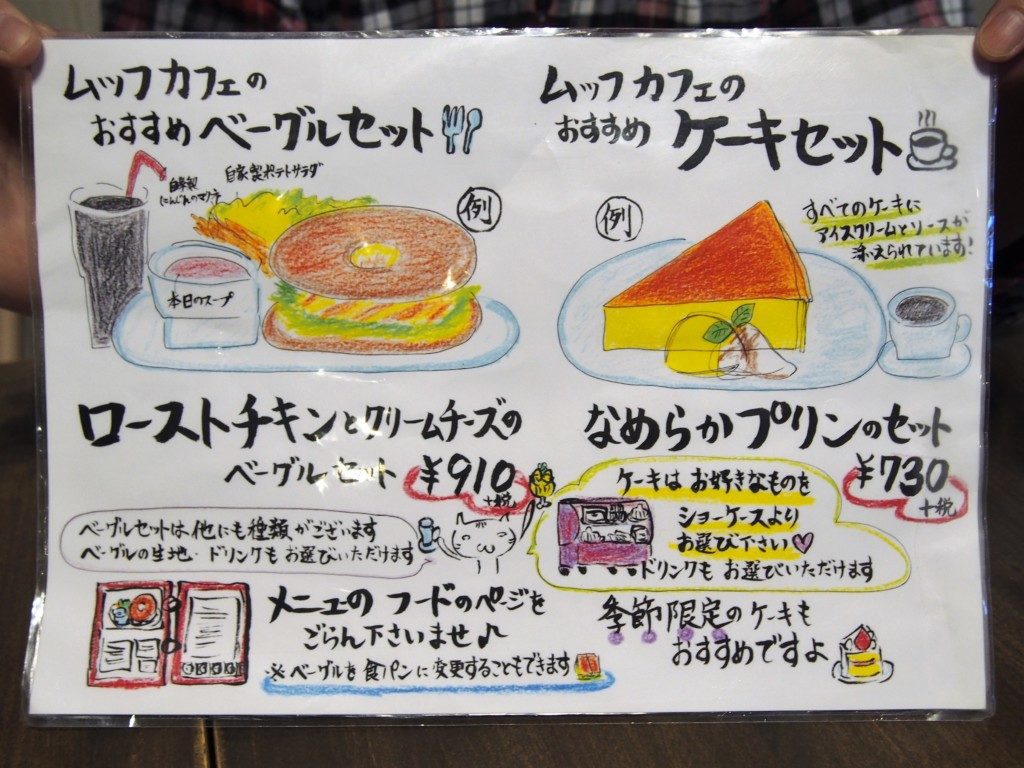 ムッフ カフェの
おすすめ ベーグルセット
自家製
にんじんのマリネ
自家製ポテトサラダ
例
本日のスープ
ローストチキンとクリームチーズの
ベーグルセット ¥910
+税
ベーグルセットは他にも種類がございます
ベーグルの生地・ドリンクもお選びいただけます
メニューの フードのページを
ごらん下さいませ♪
※ベーグルを食パンに変更することもできます
ムッフ カフェの
おすすめ ケーキセット
例
すべてのケーキに
アイスクリームとソースが
添えられています!
なめらかプリンのセット
¥730
+税
ケーキはお好きなものを
ショーケースより
お選び下さい♡
ドリンクもお選びいただけます
季節限定のケーキも
おすすめですよ